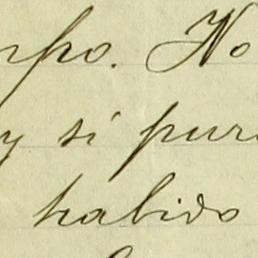 mpo. No
y si pur
habido